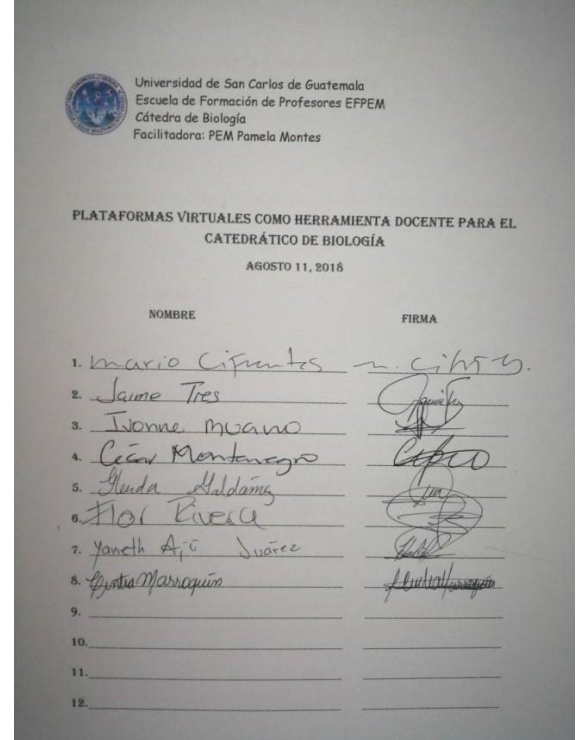 Universidad de San Carlos de Guatemala
Escuela de Formación de Profesores EFPEM
Cátedra de Biología
Facilitadora: PEM Pamela Montes
PLATAFORMAS VIRTUALES COMO HERRAMIENTA DOCENTE PARA EL
CATEDRÁTICO DE BIOLOGÍA
AGOSTO 11, 2018
NOMBRE FIRMA
1. Mario Cifuentes
2. Jaime Tres
3. Ivonne
4. César Montenegro
5. Glenda Galdámez
6. Flor Rivera
7. Yaneth Juárez
8. Cintia Marroquín
9.
10.
11.
12.